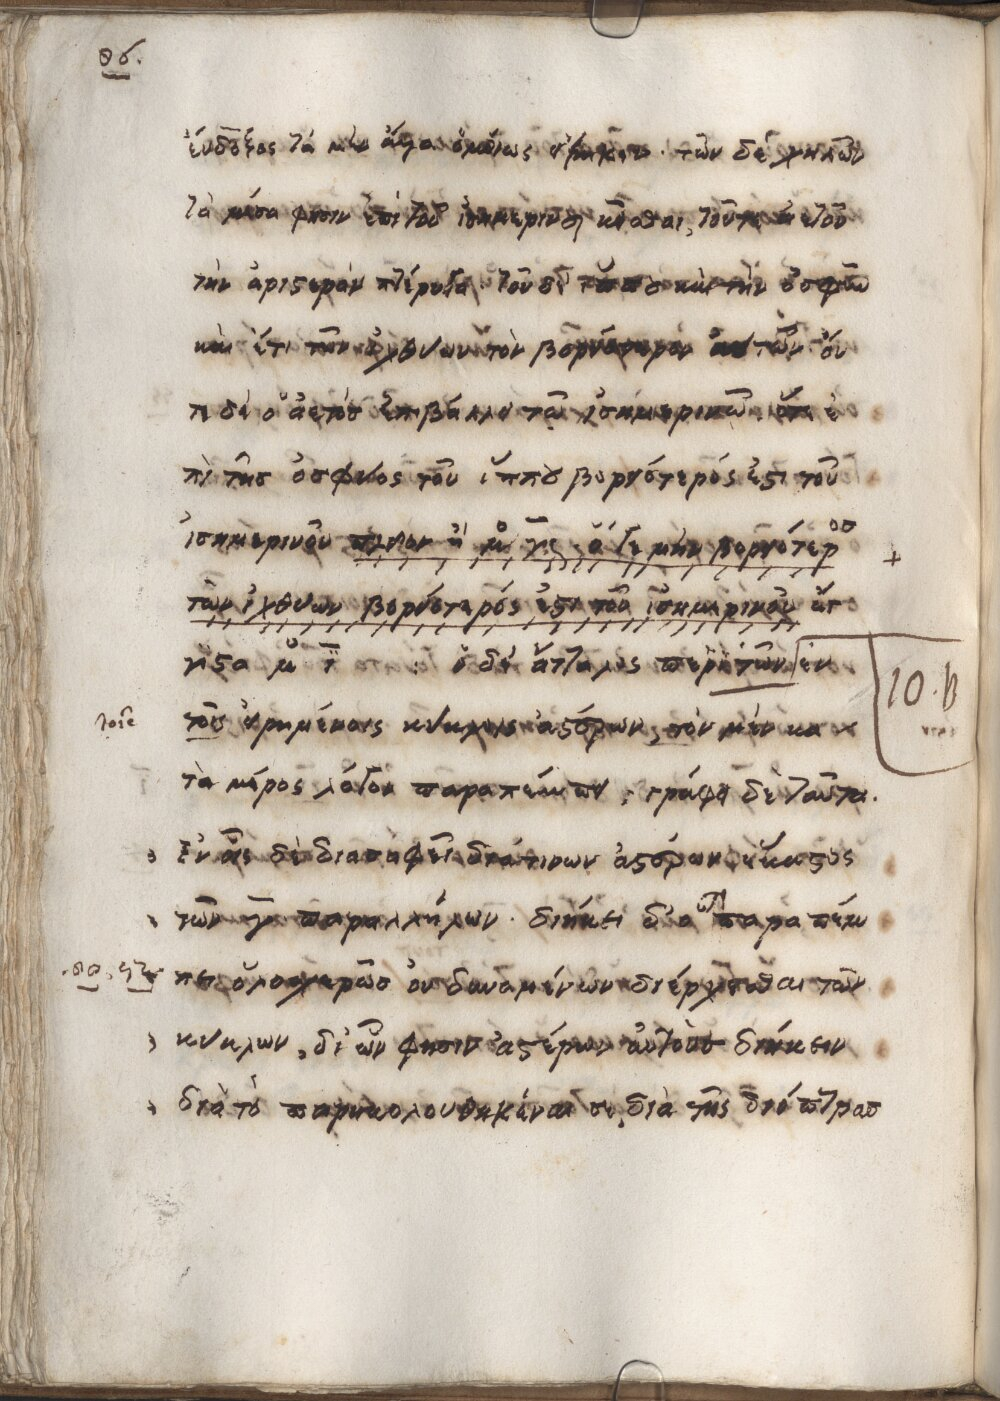 86.
εὔδοξος τὰ μὲν ἄλλα ὁμοίως εἴρηκεν. τῶν δὲ χηλῶν
τὰ μέσα φησιν ἐπὶ τοῦ ἰσημερινοῦ κεῖσθαι, τοῦτε ἀετοῦ
τὴν ἀριστερὰν πτέρυγα τοῦ δὲ ἵππου καὶ τὴν ὀσφῦν
καὶ ἔτι τῶν ἰχθύων τὸν βορειότερον αὐτῶν
τι δὲ ὁ ἀετὸς ἐπιβάλλει τῷ ἰσημερινῷ. ἐ
πὶ τῆς ὀσφύος τοῦ ἵππου βορειότερός ἐστι τοῦ
ἰσημερινοῦ πλεῖον ἢ μοῖ γϊς ὅ γε μὴν βορειότερος
+
τῶν ἰχθύων βορειότερός ἐστι τοῦ ἰσημερινοῦ ἔγ
γιστα μοῖ ῑ ὁ δὲ ἄτταλος περὶ τῶν ἐν
10.B
τοῖς
τοῖς εἰρημένοις κύκλοις ἀστέρων, τὸν μὲν κα
τὰ μέρος λόγον παραπέμπει, γράφει δὲ ταῦτα.
Ἐν οἷς δὲ διασαφεῖ διὰ τίνων ἀστέρων ἕκαστος
τῶν γ παραλλήλων. διήκει
πει ὁλοσχερῶς οὐ δυναμένων διέρχεσθαι τῶν
κύκλων, δι ὧν φησιν ἀστέρων αὐτοὺς διήκειν
διὰ τὸ παρηκολουθηκέναι σε, διὰ τῆς διόπτρας